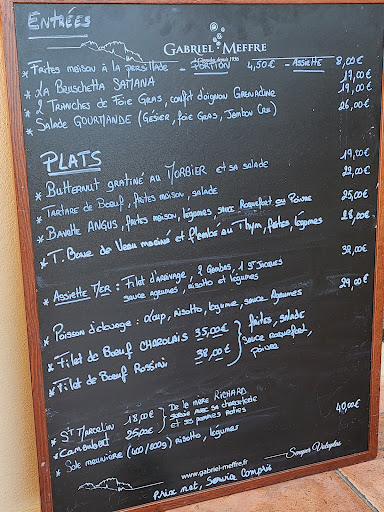 ENTRÉES
GABRIEL MEFFRE
* Frites maison à la persillade - PORTION 4,50€ - ASSIETTE 8,00€
* LA BRUSCHETTA SAMANA 19,00€
* 2 TRANCHES DE FOIE GRAS, confit d'oignon GRENADINE 19,00€
* SALADE GOURMANDE (GÉSIER, FOIE GRAS, JAMBON CRU) 26,00€
PLATS
* BUTTERNUT GRATINÉ AU MORBIER et sa salade 19,00€
* TARTARE DE BOEUF, frites maison, salade 22,00€
* BAVETTE ANGUS, frites maison, légumes, sauce Roquefort ou Poivre 25,00€
* T. Bone de Veau mariné et flambé au Thym, frites, légumes
* ASSIETTE MER : Filet d'arrivage, 2 Gambas, 1 St Jacques 32,00€
sauce agrumes, risotto et légumes
* Poisson d'élevage : Loup, risotto, légume, sauce Agrumes 29,00€
* Filet de BOEUF CHAROLAIS 35,00€ } frites, salade
* Filet de BOEUF Rossini 38,00€ sauce roquefort, poivre
* ST MARCELLIN 18,00€ } De la mère RICHARD
* CAMEMBERT 25,00€ servie avec sa charcuterie
et ses pommes nature
* Sole meunière (400/800g) risotto, légumes 40,00€
www.gabriel-meffre.fr
Prix net, Service Compris